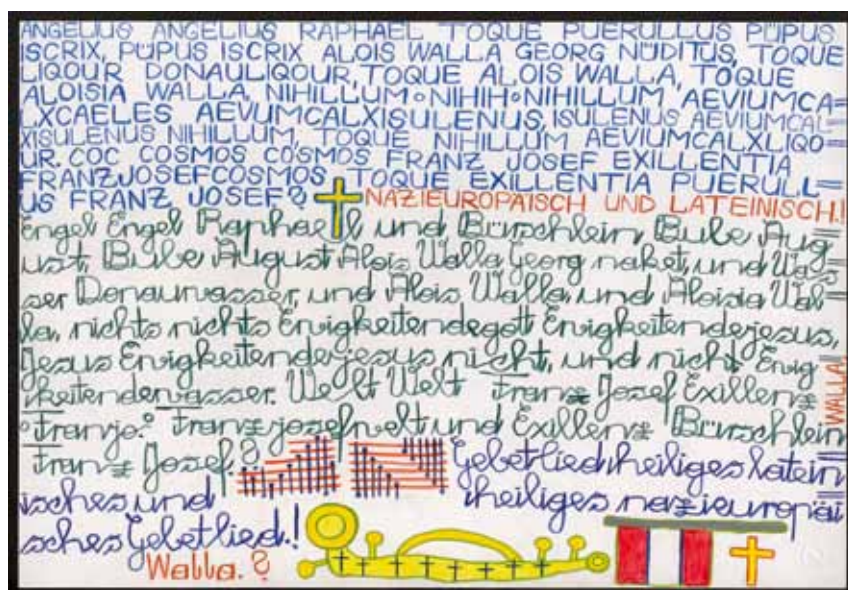 ANGELIUS ANGELIUS RAPHAEL TOQUE PUERULLUS PÜPUS
ISCRIX, PÜPUS ISCRIX ALOIS WALLA GEORG NÜDITUS, TOQUE
LIQOUR DONAULIQOUR, TOQUE ALOIS WALLA, TOQUE
ALOISIA WALLA, NIHILLUM∘NIHIH∘NIHILLUM AEVIUMCA=
LXCAELES AEVUMCALXISULENUS, ISULENUS AEVIUMCAL=
XISULENUS NIHILLUM, TOQUE NIHILLUM AEVIUMCALXLIQO=
UR. COC COSMOS COSMOS FRANZ JOSEF EXILLENTIA
FRANZJOSEFCOSMOS TOQUE EXILLENTIA PUERULL=
US FRANZ JOSEF? NAZIEUROPÄISCH UND LATEINISCH.!
Engel Engel Raphael und Bürschlein, Bube Aug=
ust, Bube August Alois Walla Georg naket, und Was=
ser Donauwasser, und Alois Walla, und Aloisia Wal=
la, nichts nichts Ewigkeitendegott Ewigkeitendejesus,
Jesus Ewigkeitendejesus nicht, und nicht Ewig=
keitendewasser. Welt Welt Franz Josef Exillenz
"Franjo." Franzjosefwelt und Exillenz Bürschlein
Franz Josef.?
WALLA.
Gebetliedheiliges latein=
isches und heiliges nazieuropäi=
sches Gebetlied.!
Walla.?